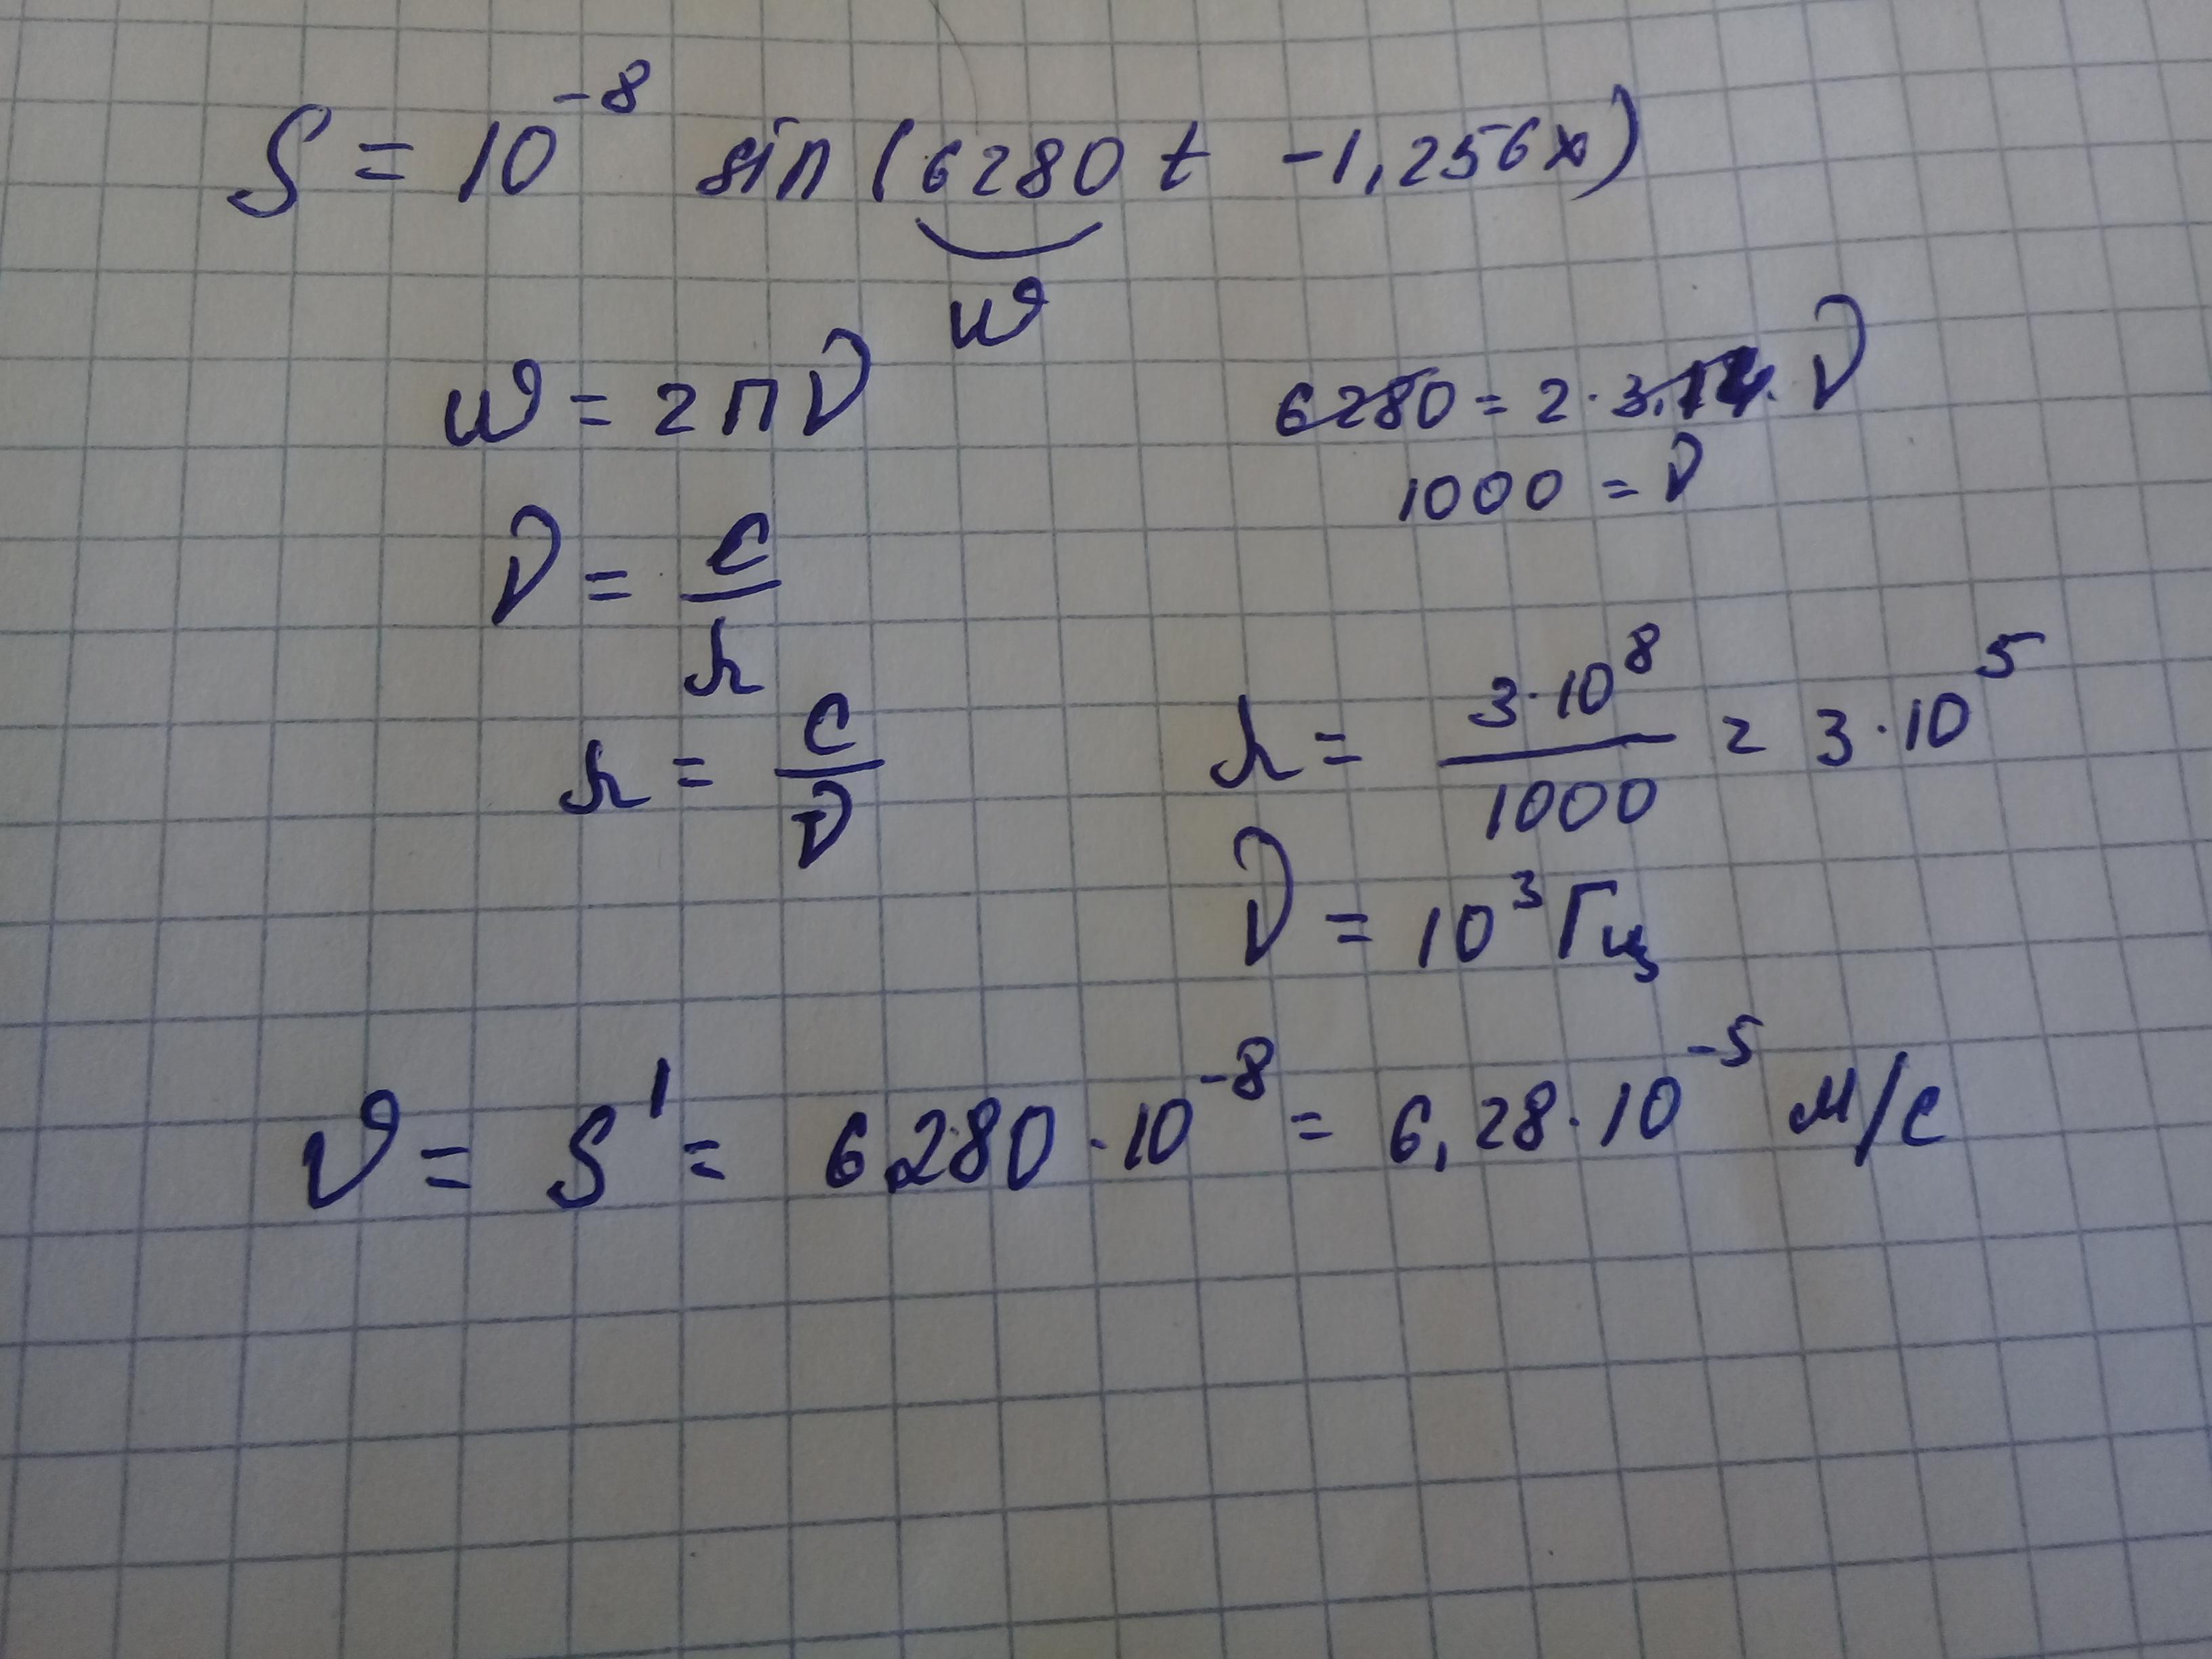 S = 10⁻⁸ sin (6280 t - 1,256x)
ω
ω = 2πν
6280 = 2 · 3,14 · ν
1000 = ν
ν = c/λ
λ = c/ν
λ = 3·10⁸/1000 = 3·10⁵
ν = 10³ Гц
v = S' = 6280·10⁻⁸ = 6,28·10⁻⁵ м/с